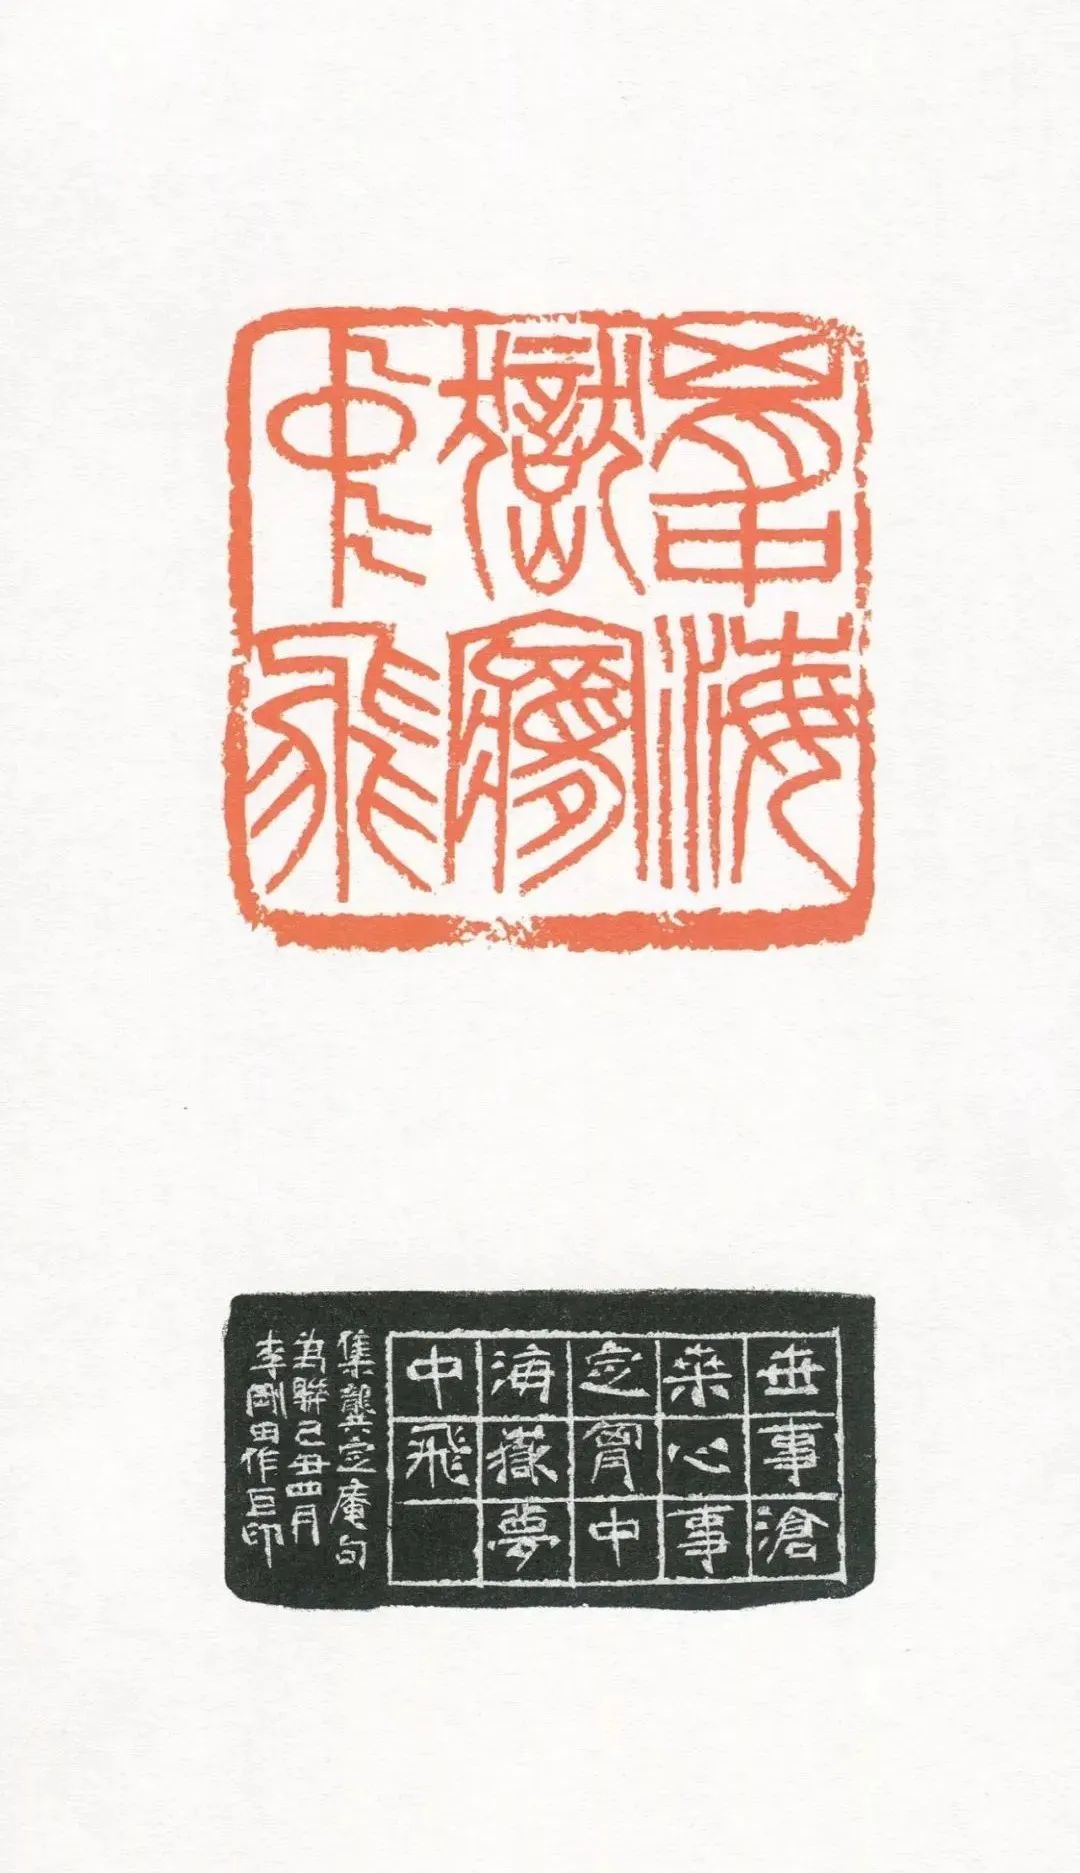 胷中海
嶽夢
中飛
世事滄
桒心事
定胷中
海嶽夢
中飛
集龔定庵句
為聯己丑四月
李剛田作巨印